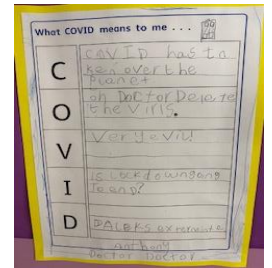 What COVID means to me ...
C
COVID has ta
ken over the
Planet
O
oh Doctor Delete
the virus.
V
Very evil!
I
is Lockdown going
to end?
D
DALEKS exterminate
anthony
Doctor Doctor